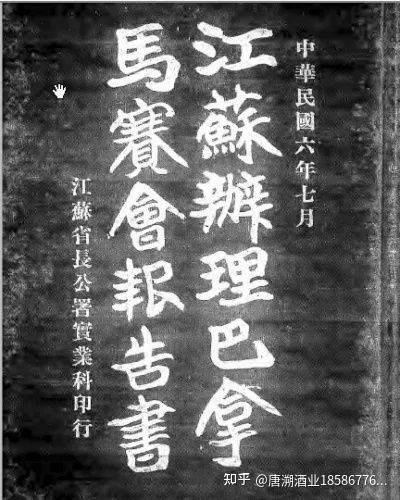 中華民國六年七月
江蘇辦理巴拿
馬賽會報告書
江蘇省長公署實業科印行
知乎 @唐溯酒业18586776...